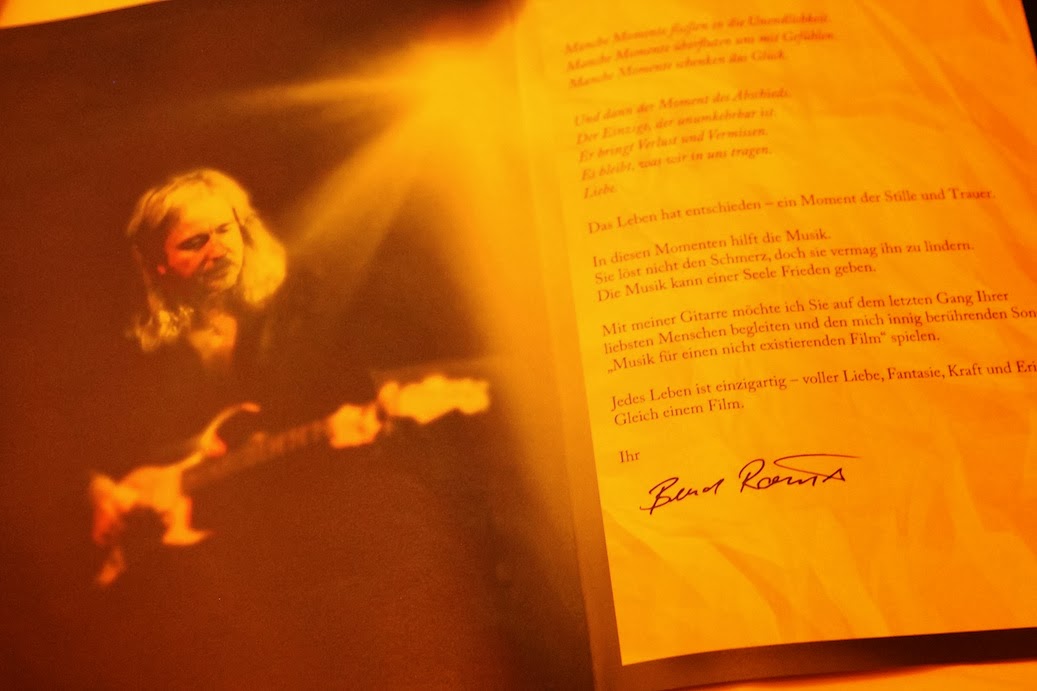 Manche Momente fließen in die Unendlichkeit.
Manche Momente überfluten uns mit Gefühlen.
Manche Momente schenken das Glück.
Und dann der Moment des Abschieds.
Der Einzige, der unumkehrbar ist.
Er bringt Verlust und Vermissen.
Es bleibt, was wir in uns tragen.
Liebe.
Das Leben hat entschieden – ein Moment der Stille und Trauer.
In diesen Momenten hilft die Musik.
Sie löst nicht den Schmerz, doch sie vermag ihn zu lindern.
Die Musik kann einer Seele Frieden geben.
Mit meiner Gitarre möchte ich Sie auf dem letzten Gang Ihrer
liebsten Menschen begleiten und den mich innig berührenden Son
„Musik für einen nicht existierenden Film“ spielen.
Jedes Leben ist einzigartig – voller Liebe, Fantasie, Kraft und Eri
Gleich einem Film.
Ihr
Bernd